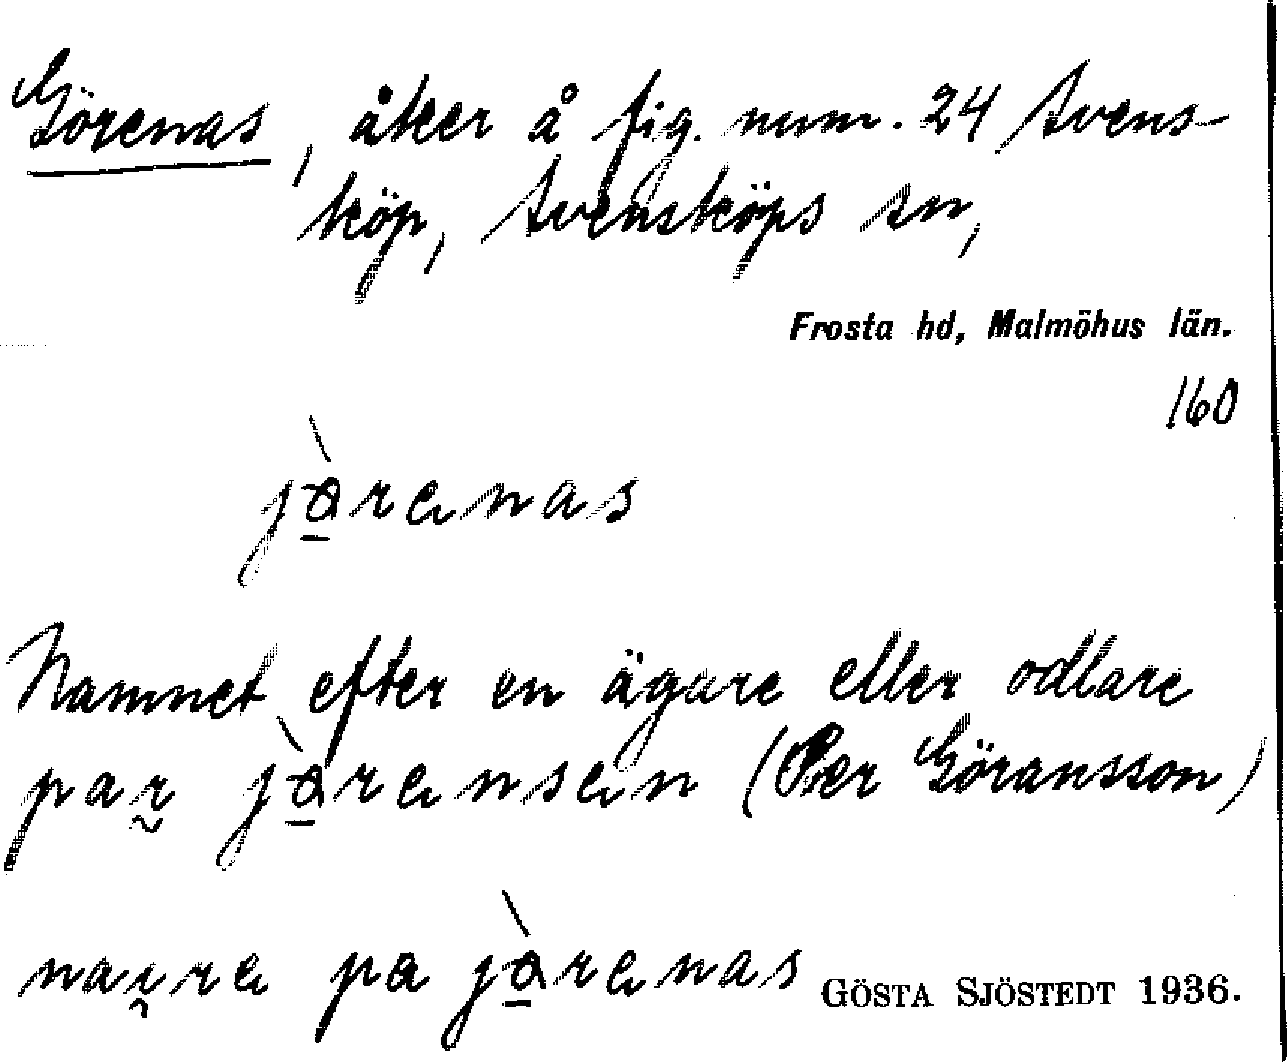 Görenas, åker å fig. num. 24 Svens-
köp, Svensköps sn,
Frosta hd, Malmöhus län.
160
jö̠̀renas
Namnet efter en ägare eller odlare
par jö̠̀rensen (Per Göransson)
naire pa jö̠̀renas
GÖSTA SJÖSTEDT 1936.